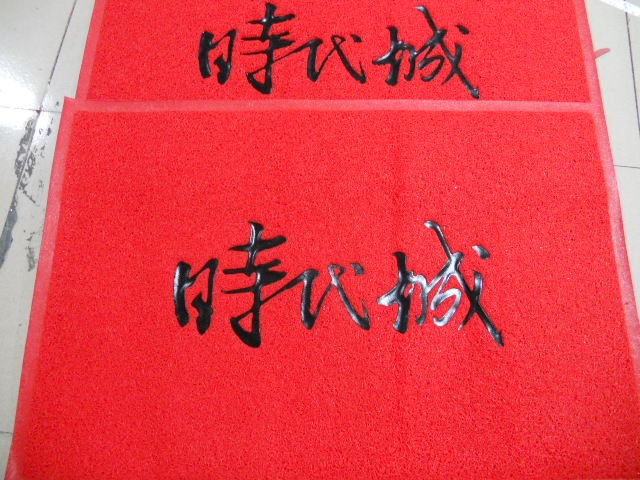 時代城
時代城